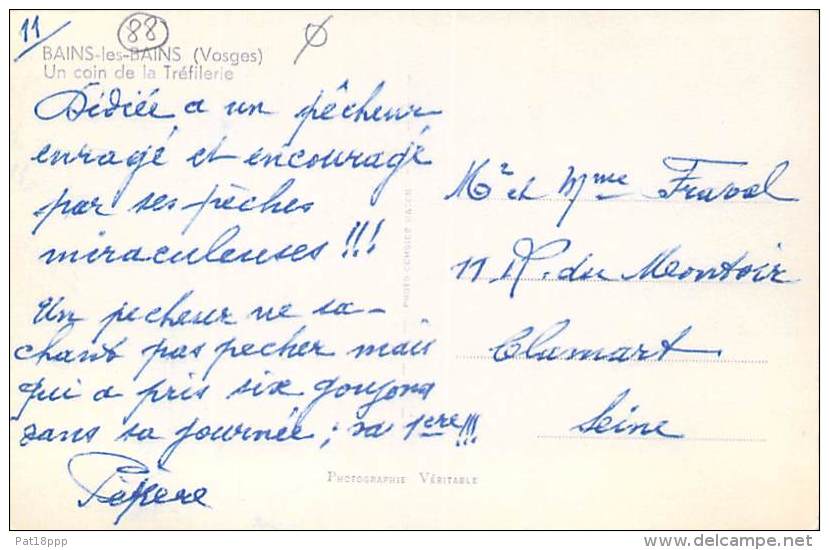 11
88
BAINS-les-BAINS (Vosges)
Un coin de la Tréfilerie
Dédiée a un pêcheur
enragé et encouragé
par ses pêches
miraculeuses !!!
Un pecheur ne sa-
chant pas pecher mais
qui a pris six goujons
dans sa journée ; sa 1ere !!!
Pépère
Mr et Mme Fraval
11 R. du Montoir
Clamart
Seine
PHOTOGRAPHIE VÉRITABLE
Pat18ppp
delcampe.net